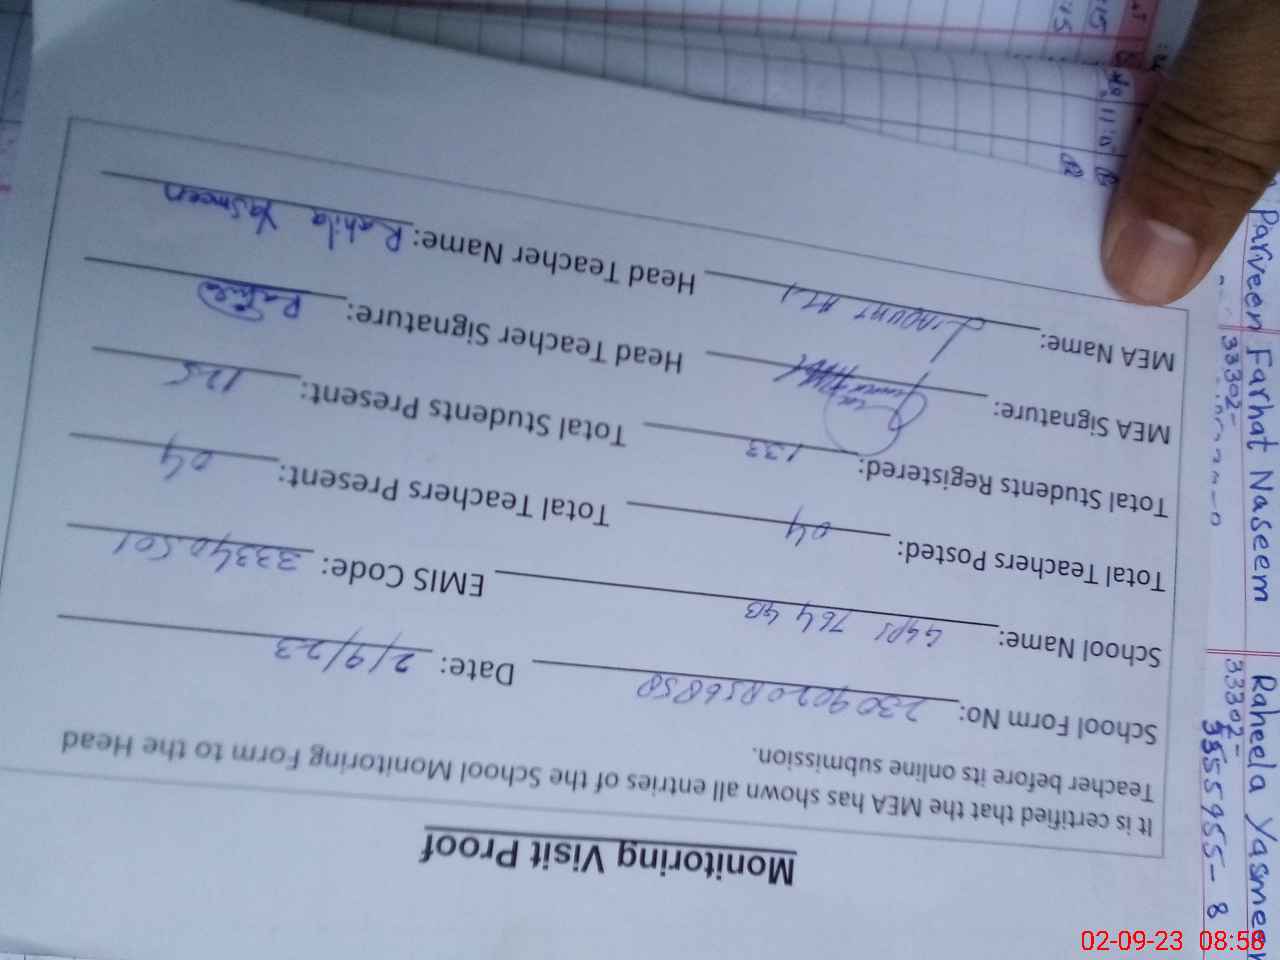 Monitoring Visit Proof
It is certified that the MEA has shown all entries of the School Monitoring Form to the Head
Teacher before its online submission.
School Form No: Date: 2/9/23
School Name: GGPS 764 GB EMIS Code: 33340501
Total Teachers Posted: 04 Total Teachers Present: 04
Total Students Registered: 133 Total Students Present: 125
MEA Signature: Head Teacher Signature:
MEA Name: Head Teacher Name: Rahila Yasmeen
Parveen Farhat Naseem Raheela Yasmeen
33302-
33302-
3555955-8
02-09-23 08:58